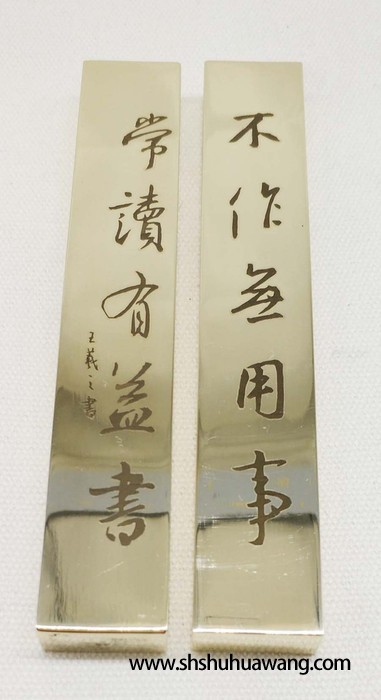 不作無用事
常讀有益書
王羲之書
www.shshuhuawang.com